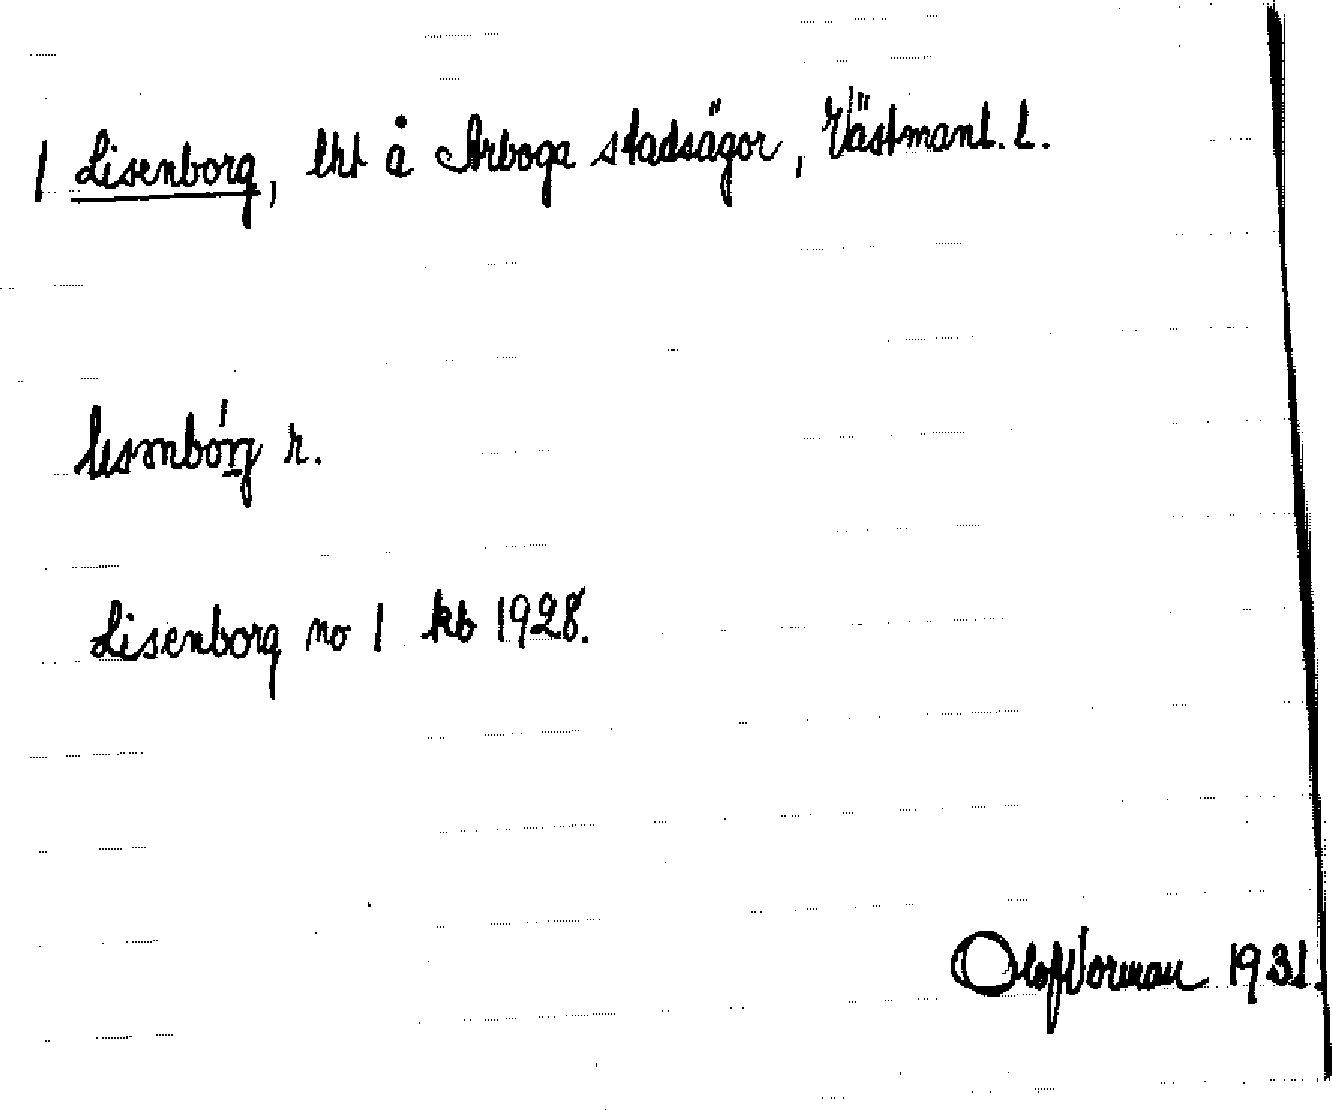 1 Lisenborg, lht å Arboga stadsägor, Västmanl. L.
r.
Lisenborg no 1 kb 1928.
Olof Vorman 1931.